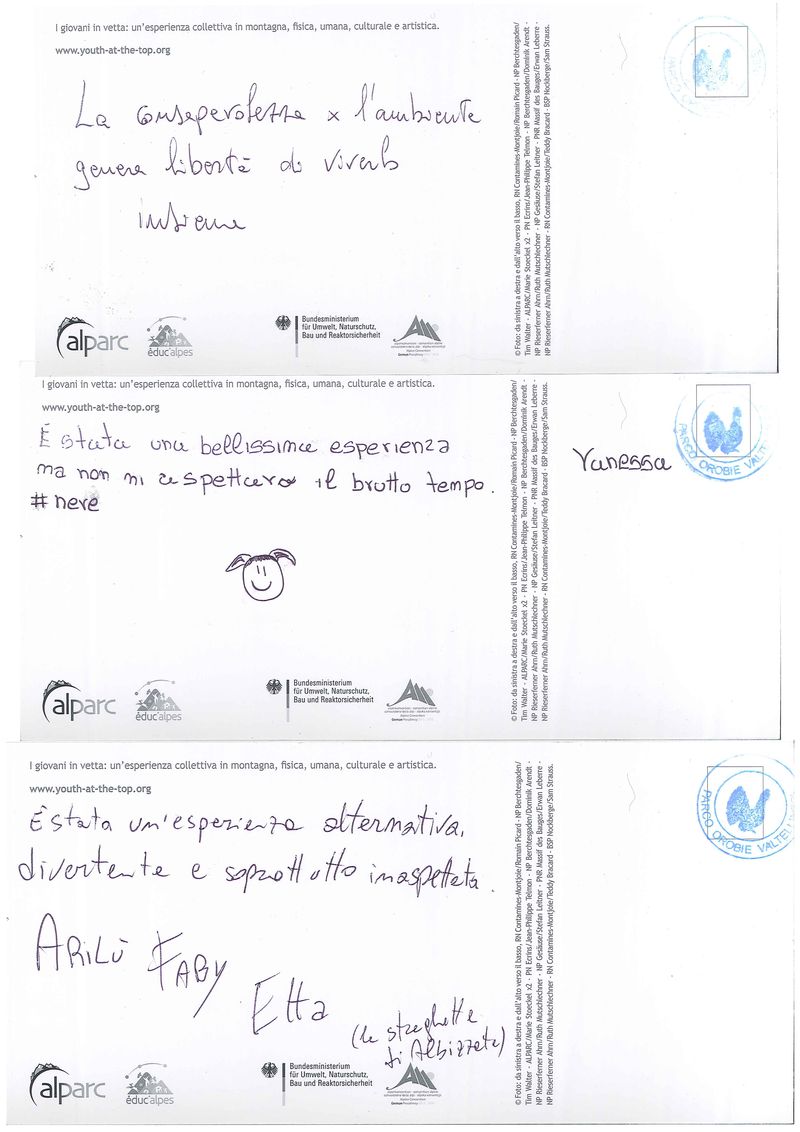 I giovani in vetta: un'esperienza collettiva in montagna, fisica, umana, culturale e artistica.
www.youth-at-the-top.org
La consapevolezza x l'ambiente
genera libertà di viverlo
insieme
alparc
éducalpes
Bundesministerium
für Umwelt, Naturschutz,
Bau und Reaktorsicherheit
© Foto: da sinistra a destra e dall'alto verso il basso, RN Contamines-Montjoie/Romain Picard - NP Berchtesgaden/
Tim Walter - ALPARC/Marie Stoeckel x2 - PN Ecrins/Jean-Philippe Telmon - NP Berchtesgaden/Dominik Arendt -
NP Rieserferner Ahrn/Ruth Mutschlechner - NP Gesäuse/Stefan Leitner - PNR Massif des Bauges/Erwan Leberre -
NP Rieserferner Ahrn/Ruth Mutschlechner - RN Contamines-Montjoie/Teddy Bracard - BSP Nockberge/Sam Strauss.
I giovani in vetta: un'esperienza collettiva in montagna, fisica, umana, culturale e artistica.
www.youth-at-the-top.org
È stata una bellissima esperienza
ma non mi aspettavo il brutto tempo.
#neve
Vanessa
PARCO OROBIE VALT
alparc
éducalpes
Bundesministerium
für Umwelt, Naturschutz,
Bau und Reaktorsicherheit
© Foto: da sinistra a destra e dall'alto verso il basso, RN Contamines-Montjoie/Romain Picard - NP Berchtesgaden/
Tim Walter - ALPARC/Marie Stoeckel x2 - PN Ecrins/Jean-Philippe Telmon - NP Berchtesgaden/Dominik Arendt -
NP Rieserferner Ahrn/Ruth Mutschlechner - NP Gesäuse/Stefan Leitner - PNR Massif des Bauges/Erwan Leberre -
NP Rieserferner Ahrn/Ruth Mutschlechner - RN Contamines-Montjoie/Teddy Bracard - BSP Nockberge/Sam Strauss.
I giovani in vetta: un'esperienza collettiva in montagna, fisica, umana, culturale e artistica.
www.youth-at-the-top.org
È stata un'esperienza alternativa,
divertente e soprattutto inaspettata.
ARILÙ FABY
Etta
(le streghette
di Albizzate)
PARCO OROBIE VALTEL
alparc
éducalpes
Bundesministerium
für Umwelt, Naturschutz,
Bau und Reaktorsicherheit
© Foto: da sinistra a destra e dall'alto verso il basso, RN Contamines-Montjoie/Romain Picard - NP Berchtesgaden/
Tim Walter - ALPARC/Marie Stoeckel x2 - PN Ecrins/Jean-Philippe Telmon - NP Berchtesgaden/Dominik Arendt -
NP Rieserferner Ahrn/Ruth Mutschlechner - NP Gesäuse/Stefan Leitner - PNR Massif des Bauges/Erwan Leberre -
NP Rieserferner Ahrn/Ruth Mutschlechner - RN Contamines-Montjoie/Teddy Bracard - BSP Nockberge/Sam Strauss.